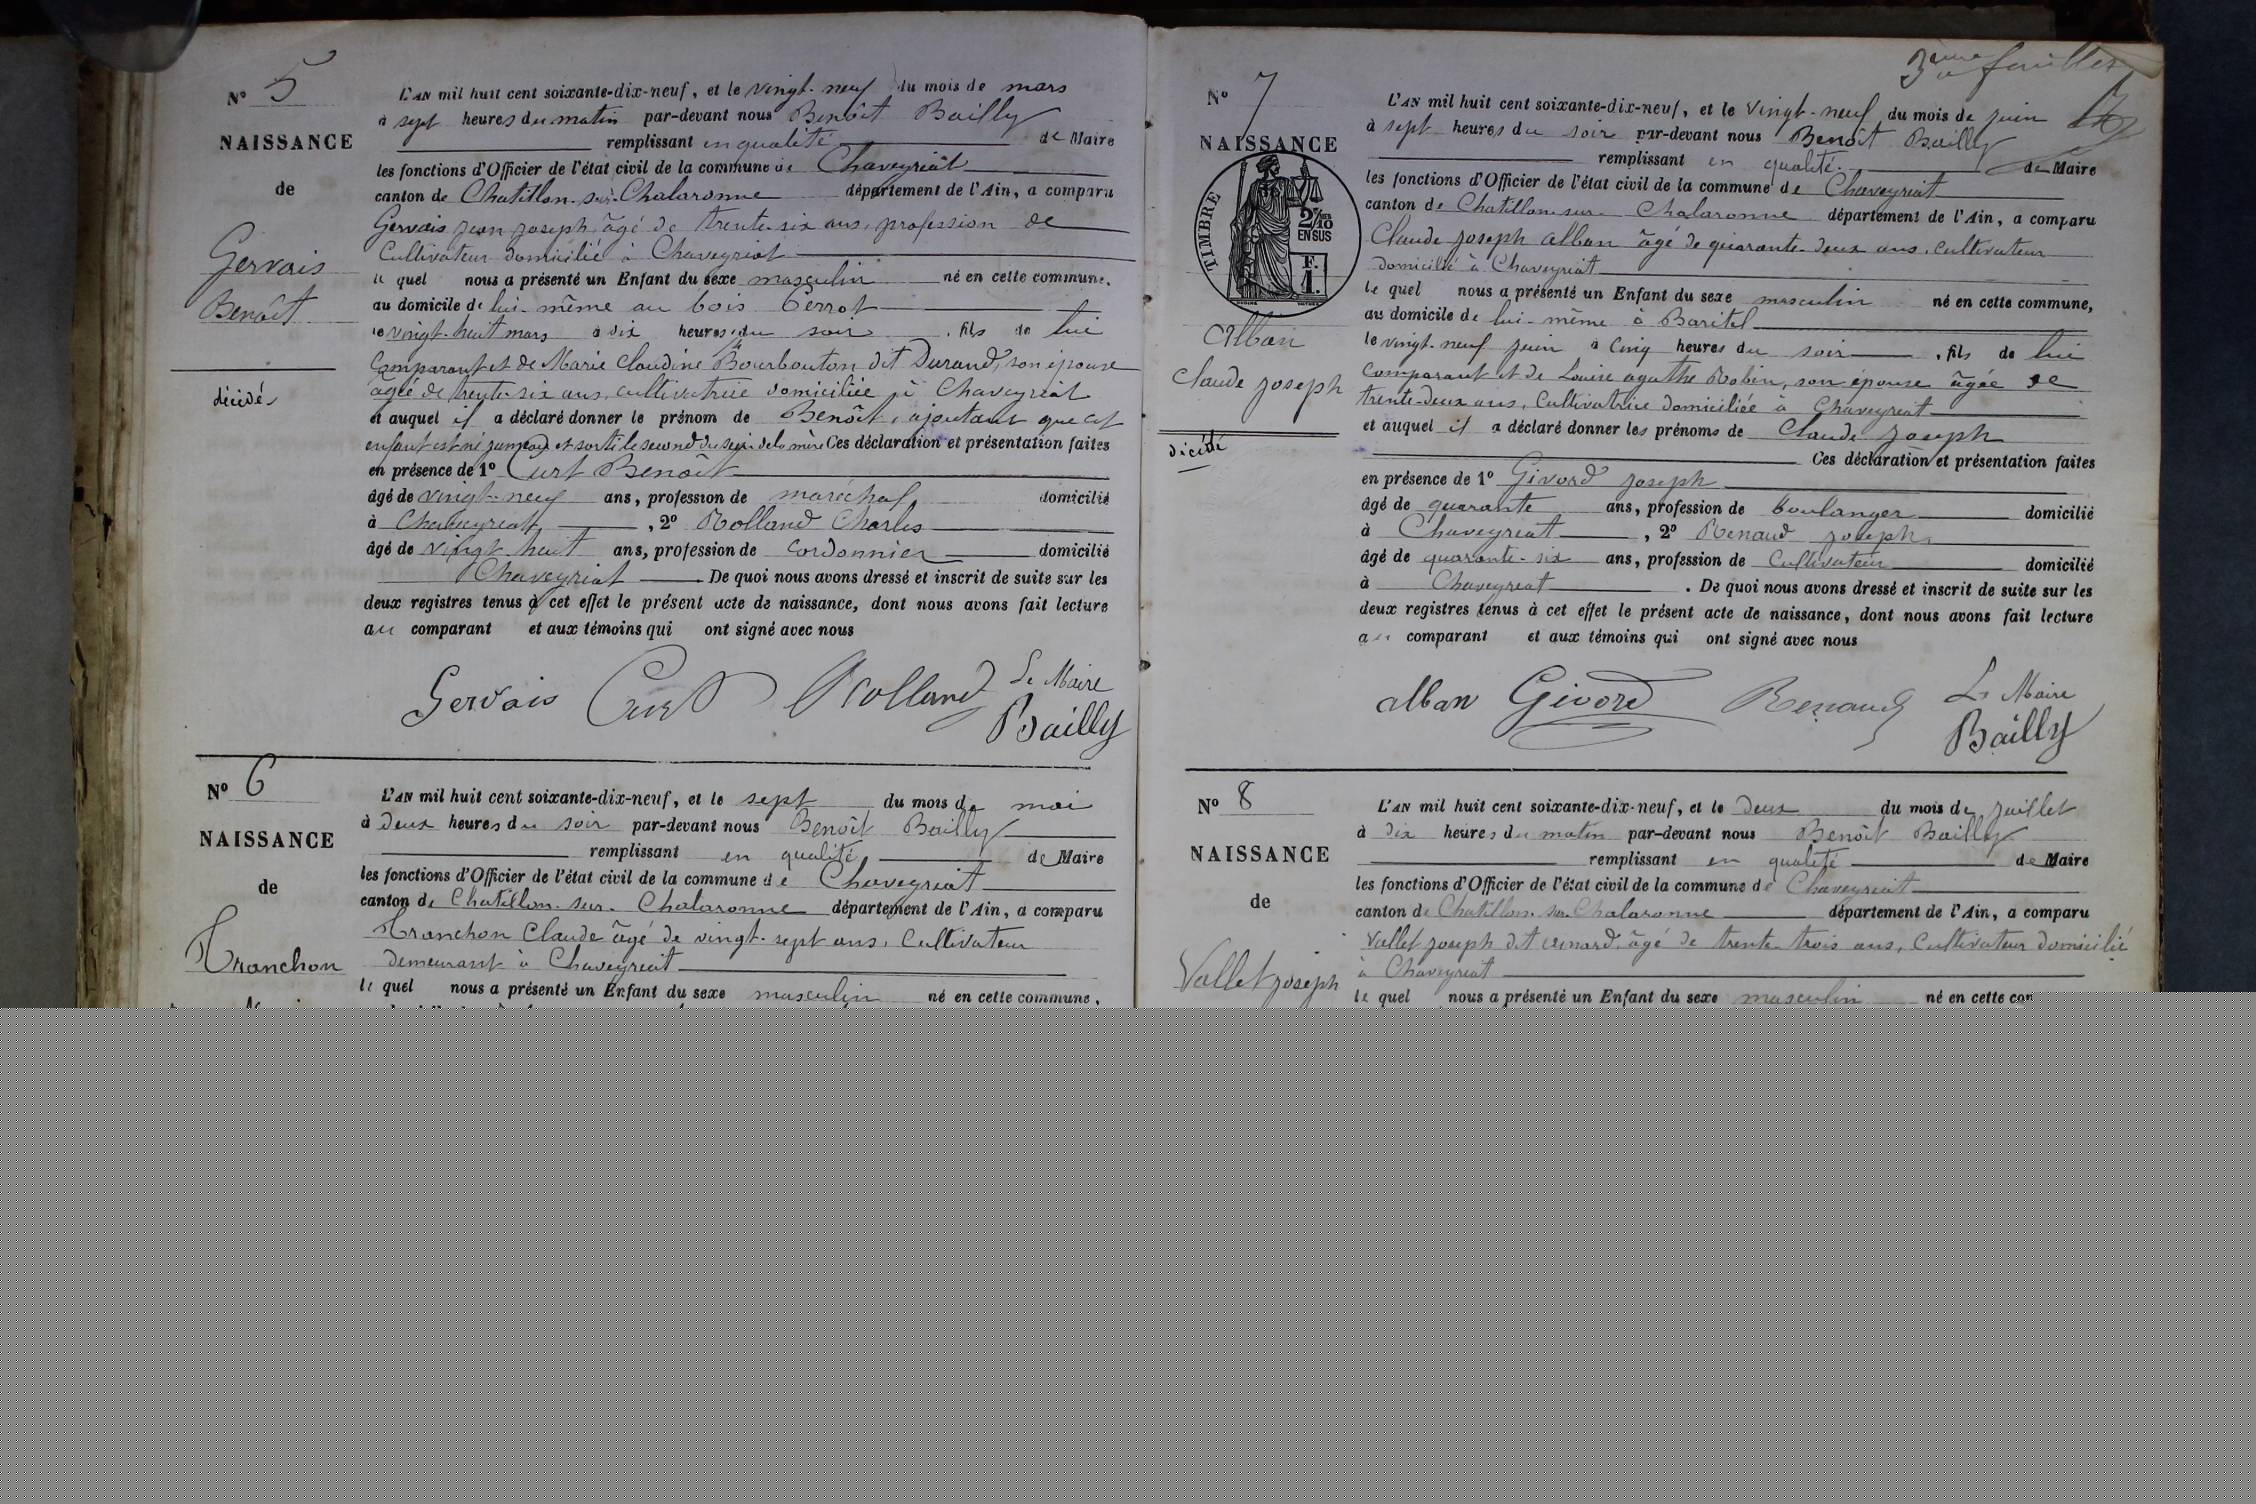 N° 5
NAISSANCE
de
Gervais
Benoît
décédé
L'AN mil huit cent soixante-dix-neuf, et le vingt-neuf du mois de mars
à sept heures du matin par-devant nous Benoît Bailly
remplissant en qualité de Maire
les fonctions d'Officier de l'état civil de la commune de Chaveyriat
canton de Chatillon-sur-Chalaronne département de l'Ain, a comparu
Gervais jean joseph, âgé de trente-six ans, profession de
Cultivateur domicilié à Chaveyriat
le quel nous a présenté un Enfant du sexe masculin né en cette commune,
au domicile de lui-même au bois Perrot
le vingt-huit mars à dix heures du soir , fils de lui
Comparant et de Marie Claudine Bourbouton dit Durand, son épouse
âgée de trente-six ans, cultivatrice domiciliée à Chaveyriat
et auquel il a déclaré donner le prénom de Benoît, ajoutant que cet
enfant est né jumeau et sorti le second du sein de la mère Ces déclaration et présentation faites
en présence de 1° Curt Benoît
âgé de vingt-neuf ans, profession de maréchal, domicilié
à Chaveyriat, , 2° Rolland Charles
âgé de vingt huit ans, profession de Cordonnier domicilié
Chaveyriat De quoi nous avons dressé et inscrit de suite sur les
deux registres tenus à cet effet le présent acte de naissance, dont nous avons fait lecture
au comparant et aux témoins qui ont signé avec nous
Gervais Curt Rolland Le Maire
Bailly
N° 6
NAISSANCE
de
Tranchon
L'AN mil huit cent soixante-dix-neuf, et le sept du mois de mai
à deux heures du soir par-devant nous Benoît Bailly
remplissant en qualité de Maire
les fonctions d'Officier de l'état civil de la commune de Chaveyriat
canton de Chatillon-sur-Chalaronne département de l'Ain, a comparu
Tranchon Claude âgé de vingt-sept ans, Cultivateur
demeurant à Chaveyriat
le quel nous a présenté un Enfant du sexe masculin né en cette commune,
3ème feuillet
N° 7
NAISSANCE
TIMBRE
2/10 EN SUS
F. 1.
Alban
Claude joseph
décédé
L'AN mil huit cent soixante-dix-neuf, et le vingt-neuf du mois de juin
à sept heures du soir par-devant nous Benoît Bailly
remplissant en qualité de Maire
les fonctions d'Officier de l'état civil de la commune de Chaveyriat
canton de Chatillon-sur-Chalaronne département de l'Ain, a comparu
Claude joseph alban âgé de quarante-deux ans, cultivateur
domicilié à Chaveyriat
le quel nous a présenté un Enfant du sexe masculin né en cette commune,
au domicile de lui-même à Baritel
le vingt-neuf juin à cinq heures du soir , fils de lui
Comparant et de Louise agathe Robin, son épouse âgée de
trente-deux ans, Cultivatrice domiciliée à Chaveyriat
et auquel il a déclaré donner les prénoms de Claude joseph
Ces déclaration et présentation faites
en présence de 1° Givord joseph
âgé de quarante ans, profession de boulanger domicilié
à Chaveyriat , 2° Renaud joseph,
âgé de quarante-six ans, profession de Cultivateur domicilié
à Chaveyriat . De quoi nous avons dressé et inscrit de suite sur les
deux registres tenus à cet effet le présent acte de naissance, dont nous avons fait lecture
au comparant et aux témoins qui ont signé avec nous
alban Givord Renaud Le Maire
Bailly
N° 8
NAISSANCE
de
Vallet joseph
L'AN mil huit cent soixante-dix-neuf, et le deux du mois de juillet
à dix heures du matin par-devant nous Benoît Bailly
remplissant en qualité de Maire
les fonctions d'Officier de l'état civil de la commune de Chaveyriat
canton de Chatillon-sur-Chalaronne département de l'Ain, a comparu
Vallet joseph dit âgé de trente-trois ans, Cultivateur domicilié
à Chaveyriat
le quel nous a présenté un Enfant du sexe masculin né en cette com